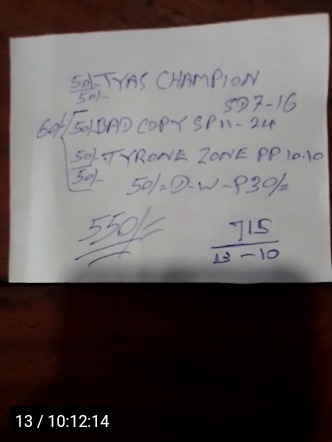 50/- TYAS CHAMPION
50/-
SD 7-16
60/- 50/- BAD COPY SP 11-24
50/- TYRONE ZONE PP 10.10
50/-
50/= D-W-P30/=
550/=
J15
13-10
13 / 10:12:14